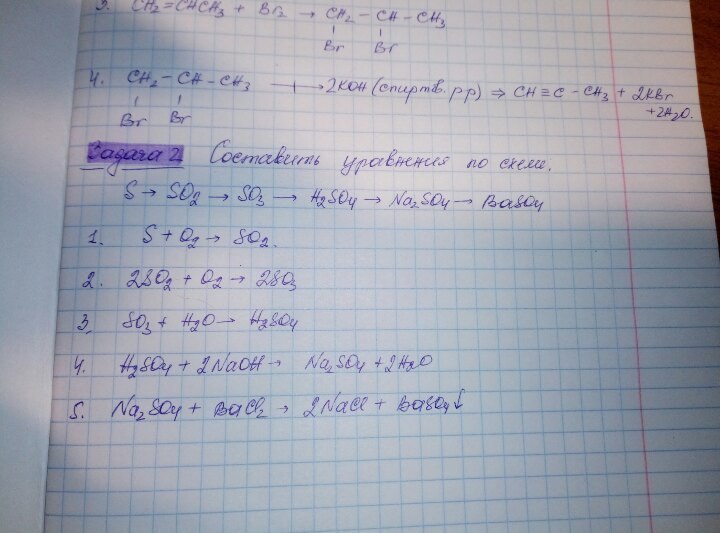 3. CH₂=CHCH₃ + Br₂ → CH₂ – CH – CH₃
Br Br
4. CH₂ – CH – CH₃ → 2KOH (спиртов. р.р) ⇒ CH ≡ C – CH₃ + 2KBr
Br Br +2H₂O.
Задача 2 Составить уравнения по схеме.
S → SO₂ → SO₃ → H₂SO₄ → Na₂SO₄ → BaSO₄
1. S + O₂ → SO₂.
2. 2SO₂ + O₂ → 2SO₃
3. SO₃ + H₂O → H₂SO₄
4. H₂SO₄ + 2NaOH → Na₂SO₄ + 2H₂O
5. Na₂SO₄ + BaCl₂ → 2NaCl + BaSO₄↓